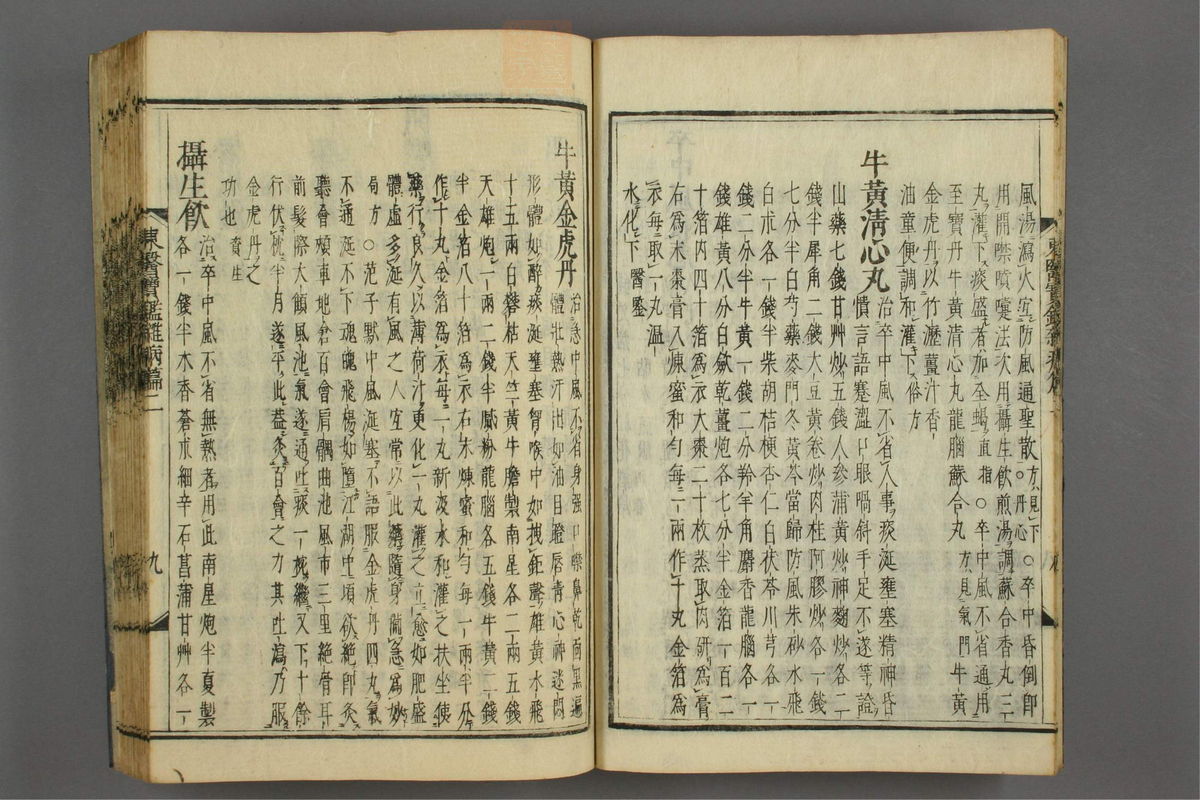 風湯瀉火宜防風通聖散方見下○卒中昏倒卽
用開噤噴嚔法次用攝生飮煎湯調蘇合香丸三
丸灌下痰盛者加全蝎直指○卒中風不省通用
至寶丹牛黃淸心丸龍腦蘇合丸方見氣門牛黃
金虎丹以竹瀝薑汁香
油童便調和灌下俗方
牛黃淸心丸
治卒中風不省人事痰涎壅塞精神昏
憒言語蹇澁口眼喎斜手足不遂等證
山藥七錢甘艸炒五錢人參蒲黃炒神麴炒各二
錢半犀角二錢大豆黃卷炒肉桂阿膠炒各一錢
七分半白芍藥麥門冬黃芩當歸防風朱砂水飛
白朮各一錢半柴胡桔梗杏仁白茯苓川芎各一
錢二分半牛黃一錢二分羚羊角麝香龍腦各一
錢雄黃八分白斂乾薑炮各七分半金箔一百二
十箔內四十箔爲衣大棗二十枚蒸取肉硏爲膏
右爲末棗膏入煉蜜和勻每一兩作十丸金箔爲
衣每取一丸溫
水化下醫鑒
牛黃金虎丹
治急中風不省身强口噤鼻乾面黑遍
體壯熱汗出如油目瞪唇靑心神迷悶
形體如醉痰涎壅塞胷喉中如拽鉅聲雄黃水飛
十五兩白礬枯天竺黃牛膽製南星各二兩五錢
天雄炮一兩二錢半膩粉龍腦各五錢牛黃二錢
半金箔八十箔爲衣右末煉蜜和勻每一兩半分
作十丸金箔爲衣每一丸新汲水和灌之扶坐使
藥行良久以薄荷汁更化一丸灌之立愈如肥盛
體虛多涎有風之人宜常以此藥隨身備急爲妙
局方○范子默中風涎塞不語服金虎丹四丸氣
不通涎不下魂魄飛楊如墮江湖中頃欲絶卽灸
聽會頰車地倉百會肩髃曲池風市三里絶骨耳
前髮際大顀風池氣遂通吐痰一椀繼又下十餘
行伏枕半月遂平此葢灸百會之力其吐瀉乃服
金虎丹之
功也資生
攝生飮
治卒中風不省無熱者用此南星炮半夏製
各一錢半木香蒼朮細辛石菖蒲甘艸各一
東醫寶鑑雜病篇二
九